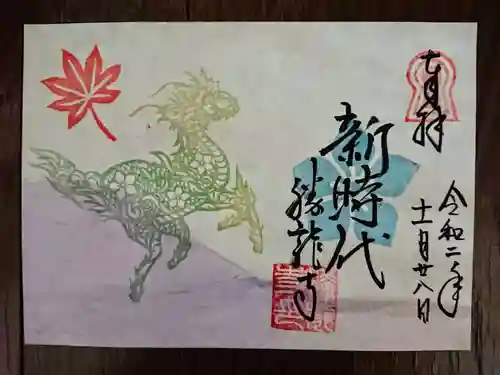 奉拝
新時代
勝龍寺
令和二年
十一月廿八日